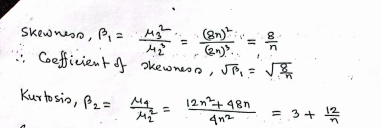 Skewness, β₁ = μ₃² / μ₂³ = (8n)² / (2n)³ = 8/n
∴ Coefficient of skewness, √β₁ = √(8/n)
Kurtosis, β₂ = μ₄ / μ₂² = (12n² + 48n) / 4n² = 3 + 12/n